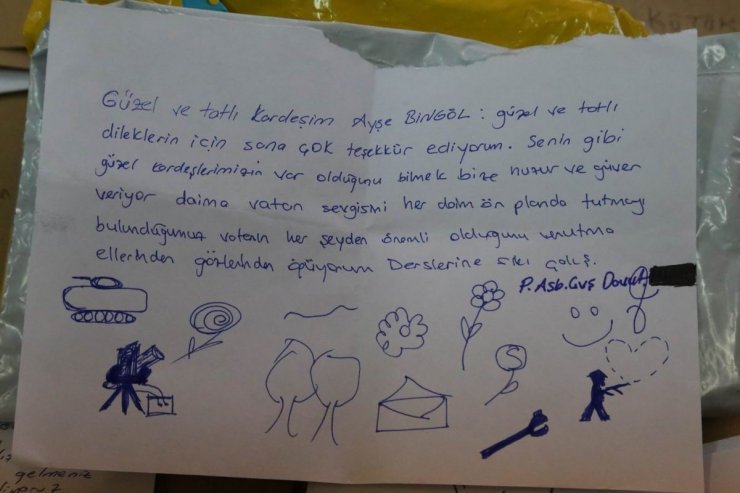 KÜTÜK
Güzel ve tatlı kardeşim Ayşe BİNGÖL : güzel ve tatlı
dileklerin için sana çok teşekkür ediyorum. Senin gibi
güzel kardeşlerimizin var olduğunu bilmek bize huzur ve güven
veriyor daima vatan sevgisini her daim ön planda tutmay
bulunduğumuz vatanın her şeyden önemli olduğunu unutma
ellerinden gözlerinden öpüyorum Derslerine sıkı çalış.
P. Asb. Çvş Davut
gelmeniz